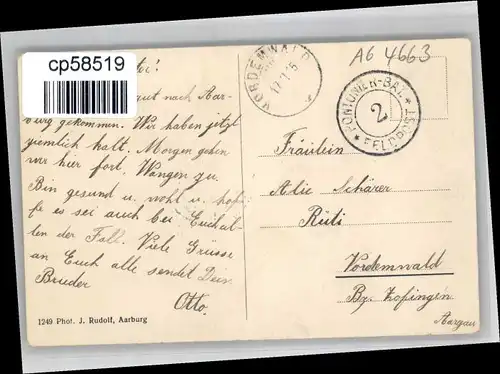 cp58519
AG 4663
VORDEMWALD
17.1.15
PONTONIER-BAT.
2
FELDPOST
gut nach Aar-
burg gekommen. Wir haben jetzt
ziemlich kalt. Morgen gehen
wir hier fort. Wangen zu.
Bin gesund u. wohl u. hof-
fe es sei auch bei Euch al-
len der Fall. Viele Grüsse
an Euch alle sendet Dein
Bruder
Otto.
Fräulein
Alie Schärer
Rüti
Vordemwald
Bz. Zofingen
Aargau
1249 Phot. J. Rudolf, Aarburg